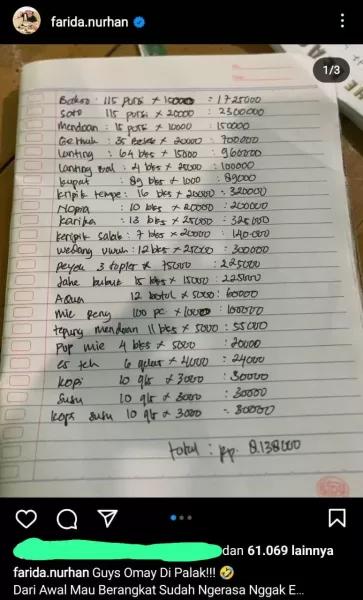 farida.nurhan
1/3
Bakso : 115 porsi x 15000 : 1725000
Soto 115 porsi x 20000 : 2300000
Mendoan : 15 porsi x 10000 : 150000
35 Besek x 20000 : 700000
Lanting : 64 bks x 15000 : 960000
Lanting 4 bks x 25000 : 100000
kupat : 89 bks x 1000 : 89000
kripik tempe : 16 bks x 20000 : 320000
Nopia : 10 bks x 20000 : 200000
karika : 13 bks x 25000 : 325000
keripik salak : 7 bks x 20000 : 140.000
wedang uwuh : 12 bks x 25000 : 300000
peyek 3 toples x 75000 : 225000
Jahe bubuk 15 bks x 15000 : 225000
Aqua 12 botol x 5000 : 60000
mie 100 pc x 1000 : 100000
tepung mendoan 11 bks x 5000 : 55000
Pop mie 4 bks x 5000 : 20000
es teh 6 gelas x 4000 : 24000
kopi 10 gls x 3000 : 30000
Susu 10 gls x 3000 : 30000
kopi susu 10 gls x 3000 : 30000
total : Rp. 8.138000
dan 61.069 lainnya
farida.nurhan Guys Omay Di Palak!!! 🤣
Dari Awal Mau Berangkat Sudah Ngerasa Nggak E...